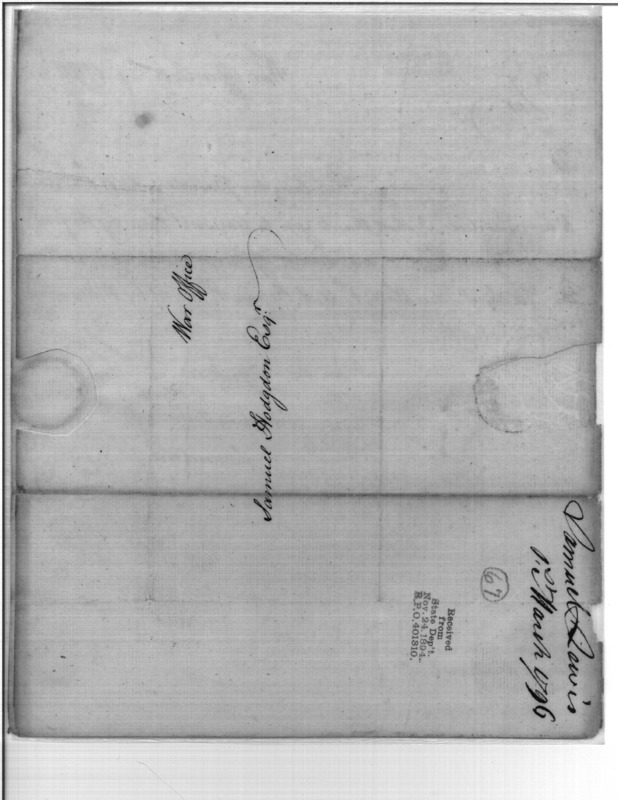 War Office
Samuel Hodgdon Esqr.
Samuel Lewis
1st March 1796
67
Received
from
State Dep't.
Nov. 24, 1894.
R.P.O. 401310.